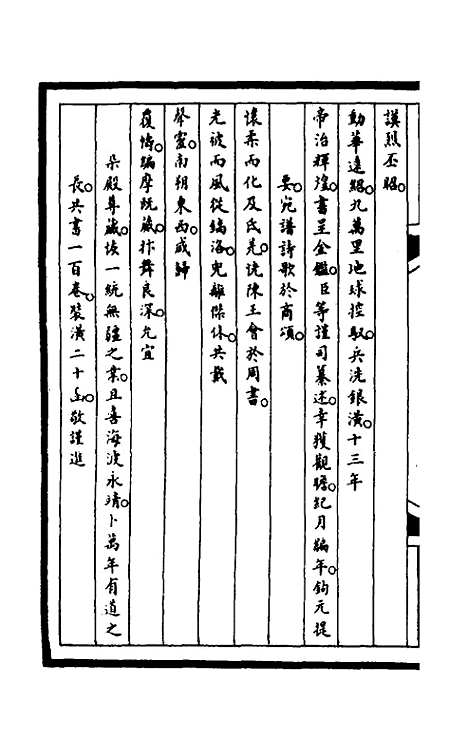 謨烈丕昭。
勳華遠紹。九萬里地球控馭。兵洗銀潢。十三年
帝治輝煌。書呈金鑑。臣等謹司纂述。幸獲觀瞻。紀月編年。鉤元提
要。宛譜詩歌於商頌。
懷柔而化及氐羌。詵陳王會於周書。
光被而風從縞洛。兜離傑休。共戴
聲靈。南朔東西。咸歸
覆幬。編摩既蕆。抃舞良深。允宜
朵殿尊藏。俟一統無疆之業。且喜海波永靖。卜萬年有道之
長。共書一百卷。裝潢二十函。敬謹進